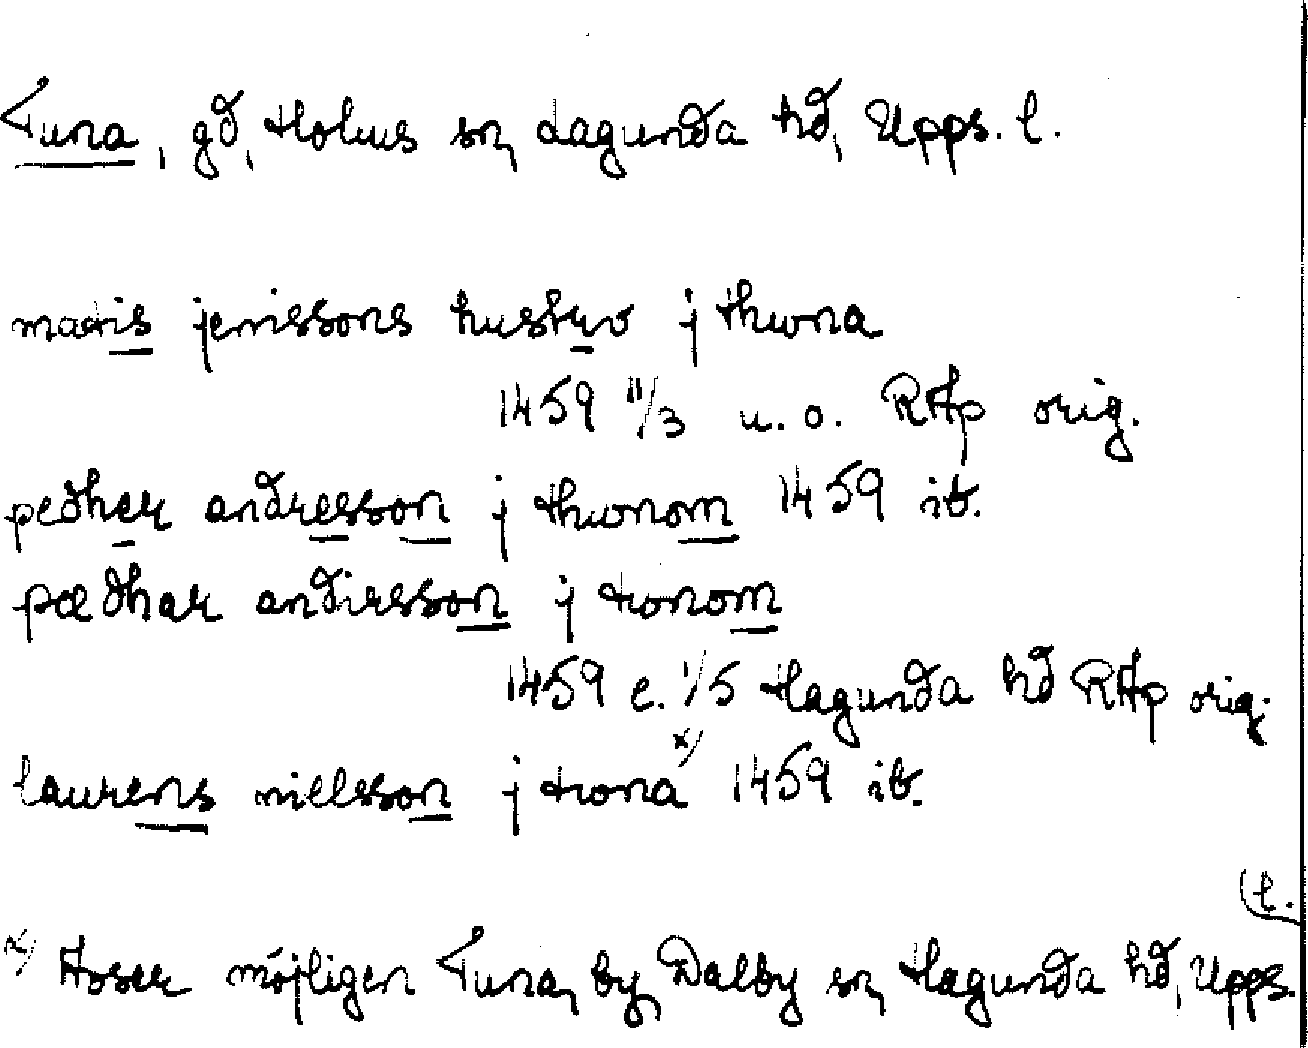 Tuna, gd, Holms sn, Lagunda hd, Upps. l.
matis jenissons hustrv j thwna
1459 11/3 u. o. RAp orig.
pedher andresson j thwnom 1459 ib.
pædhar andirsson j twnom
1459 e. 1/5 Hagunda hd RAp orig.
laurens nielsson j twna x) 1459 ib.
x) Avser möjligen Tuna, by, Dalby sn, Hagunda hd, Upps. l.